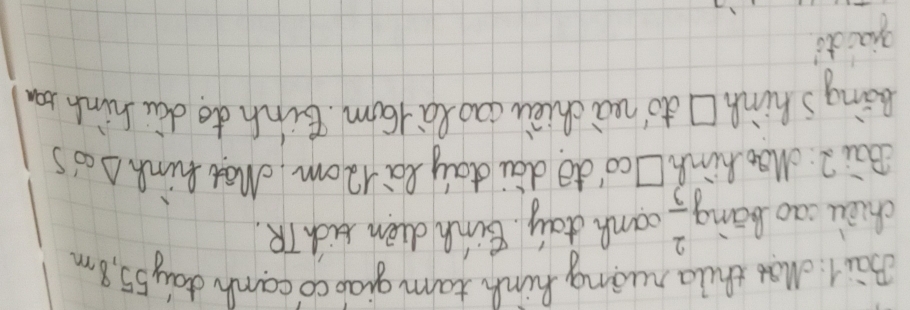 Bài 1: Một thửa ruộng hình tam giác có cạnh đáy 55,8m
chiều cao bằng 2/3 cạnh đáy. Tính diện tích TR.
Bài 2: Một hình □ có độ dài đáy là 12cm. Một hình Δ có S
bằng S hình □ đó và chiều cao là 16cm. Tính độ dài hình tam
giác đó.